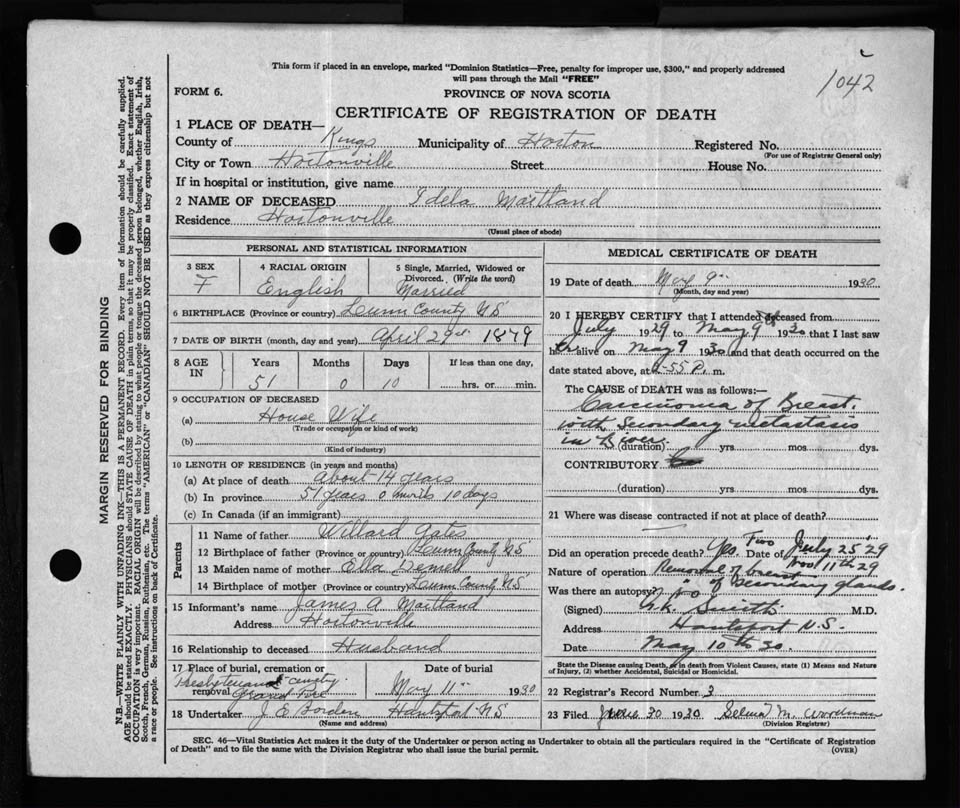 This form if placed in an envelope, marked "Dominion Statistics—Free, penalty for improper use, $300," and properly addressed
will pass through the Mail "FREE"
1042
FORM 6.
PROVINCE OF NOVA SCOTIA
CERTIFICATE OF REGISTRATION OF DEATH
1 PLACE OF DEATH—
County of Kings Municipality of Horton Registered No.
(For use of Registrar General only)
City or Town Hortonville Street House No.
If in hospital or institution, give name
2 NAME OF DECEASED Idela Maitland
Residence Hortonville
(Usual place of abode)
PERSONAL AND STATISTICAL INFORMATION
3 SEX F
4 RACIAL ORIGIN English
5 Single, Married, Widowed or Divorced. (Write the word) Married
6 BIRTHPLACE (Province or country) Lunn County NS
7 DATE OF BIRTH (month, day and year) April 29th 1879
8 AGE IN Years 51 Months 0 Days 10 If less than one day, hrs. or min.
9 OCCUPATION OF DECEASED
(a) House Wife
(Trade or occupation or kind of work)
(b)
(Kind of industry)
10 LENGTH OF RESIDENCE (in years and months)
(a) At place of death about 14 years
(b) In province 51 years 0 months 10 days
(c) In Canada (if an immigrant)
Parents
11 Name of father Willard Gates
12 Birthplace of father (Province or country) Lunn County NS
13 Maiden name of mother Ella
14 Birthplace of mother (Province or country) Lunn County NS
15 Informant's name James A Maitland
Address Hortonville
16 Relationship to deceased Husband
17 Place of burial, cremation or removal Presbyterian Grand Pre
Date of burial May 11th 1930
18 Undertaker J E Borden Hantsport NS
(Name and address)
MEDICAL CERTIFICATE OF DEATH
19 Date of death May 9th 1930
(Month, day and year)
20 I HEREBY CERTIFY that I attended deceased from
July 1929 to May 9th 1930 that I last saw
her alive on May 9 1930 and that death occurred on the
date stated above, at -55 P. m.
The CAUSE of DEATH was as follows:—
Carcinoma of Breast
with Secondary metastasis
in Liver. (duration) yrs mos dys.
CONTRIBUTORY
(duration) yrs mos dys.
21 Where was disease contracted if not at place of death?
Did an operation precede death? Yes. Two Date of July 25 '29
Nov 11th 29
Nature of operation Removal of breast
" of secondary glands.
Was there an autopsy? No
(Signed) Smith M.D.
Address Hantsport N.S.
Date May 10th 30.
State the Disease causing Death, or in death from Violent Causes, state (1) Means and Nature
of Injury, (2) whether Accidental, Suicidal or Homicidal.
22 Registrar's Record Number 3
23 Filed June 30 1930 Selena M. Woodman
(Division Registrar)
SEC. 46—Vital Statistics Act makes it the duty of the Undertaker or person acting as Undertaker to obtain all the particulars required in the "Certificate of Registration
of Death" and to file the same with the Division Registrar who shall issue the burial permit.
(OVER)
MARGIN RESERVED FOR BINDING
N.B.—WRITE PLAINLY WITH UNFADING INK—THIS IS A PERMANENT RECORD. Every item of information should be carefully supplied.
AGE should be stated EXACTLY. PHYSICIANS should STATE CAUSE OF DEATH in plain terms, so that it may be properly classified. Exact statement of
OCCUPATION is very important. RACIAL ORIGIN will be described by stating to what people or tongue the deceased person belonged, whether English, Irish,
Scotch, French, German, Russian, Ruthenian, etc. The terms "AMERICAN" or "CANADIAN" SHOULD NOT BE USED as they express citizenship but not
a race or people. See instructions on back of Certificate.